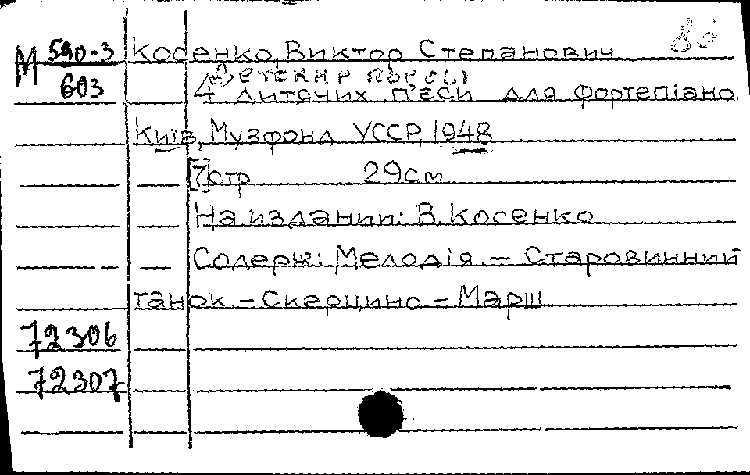 М 590-3 Косенко, Виктор Степанович
603 Детские пьесы
4 дитячих п'єси для фортепіано
Київ, Музфонд УССР, 1948
[7]стр 29см
На издании: В. Косенко
Содерж: Мелодія. - Старовинний
танок - Скерцино - Марш
72306
72307